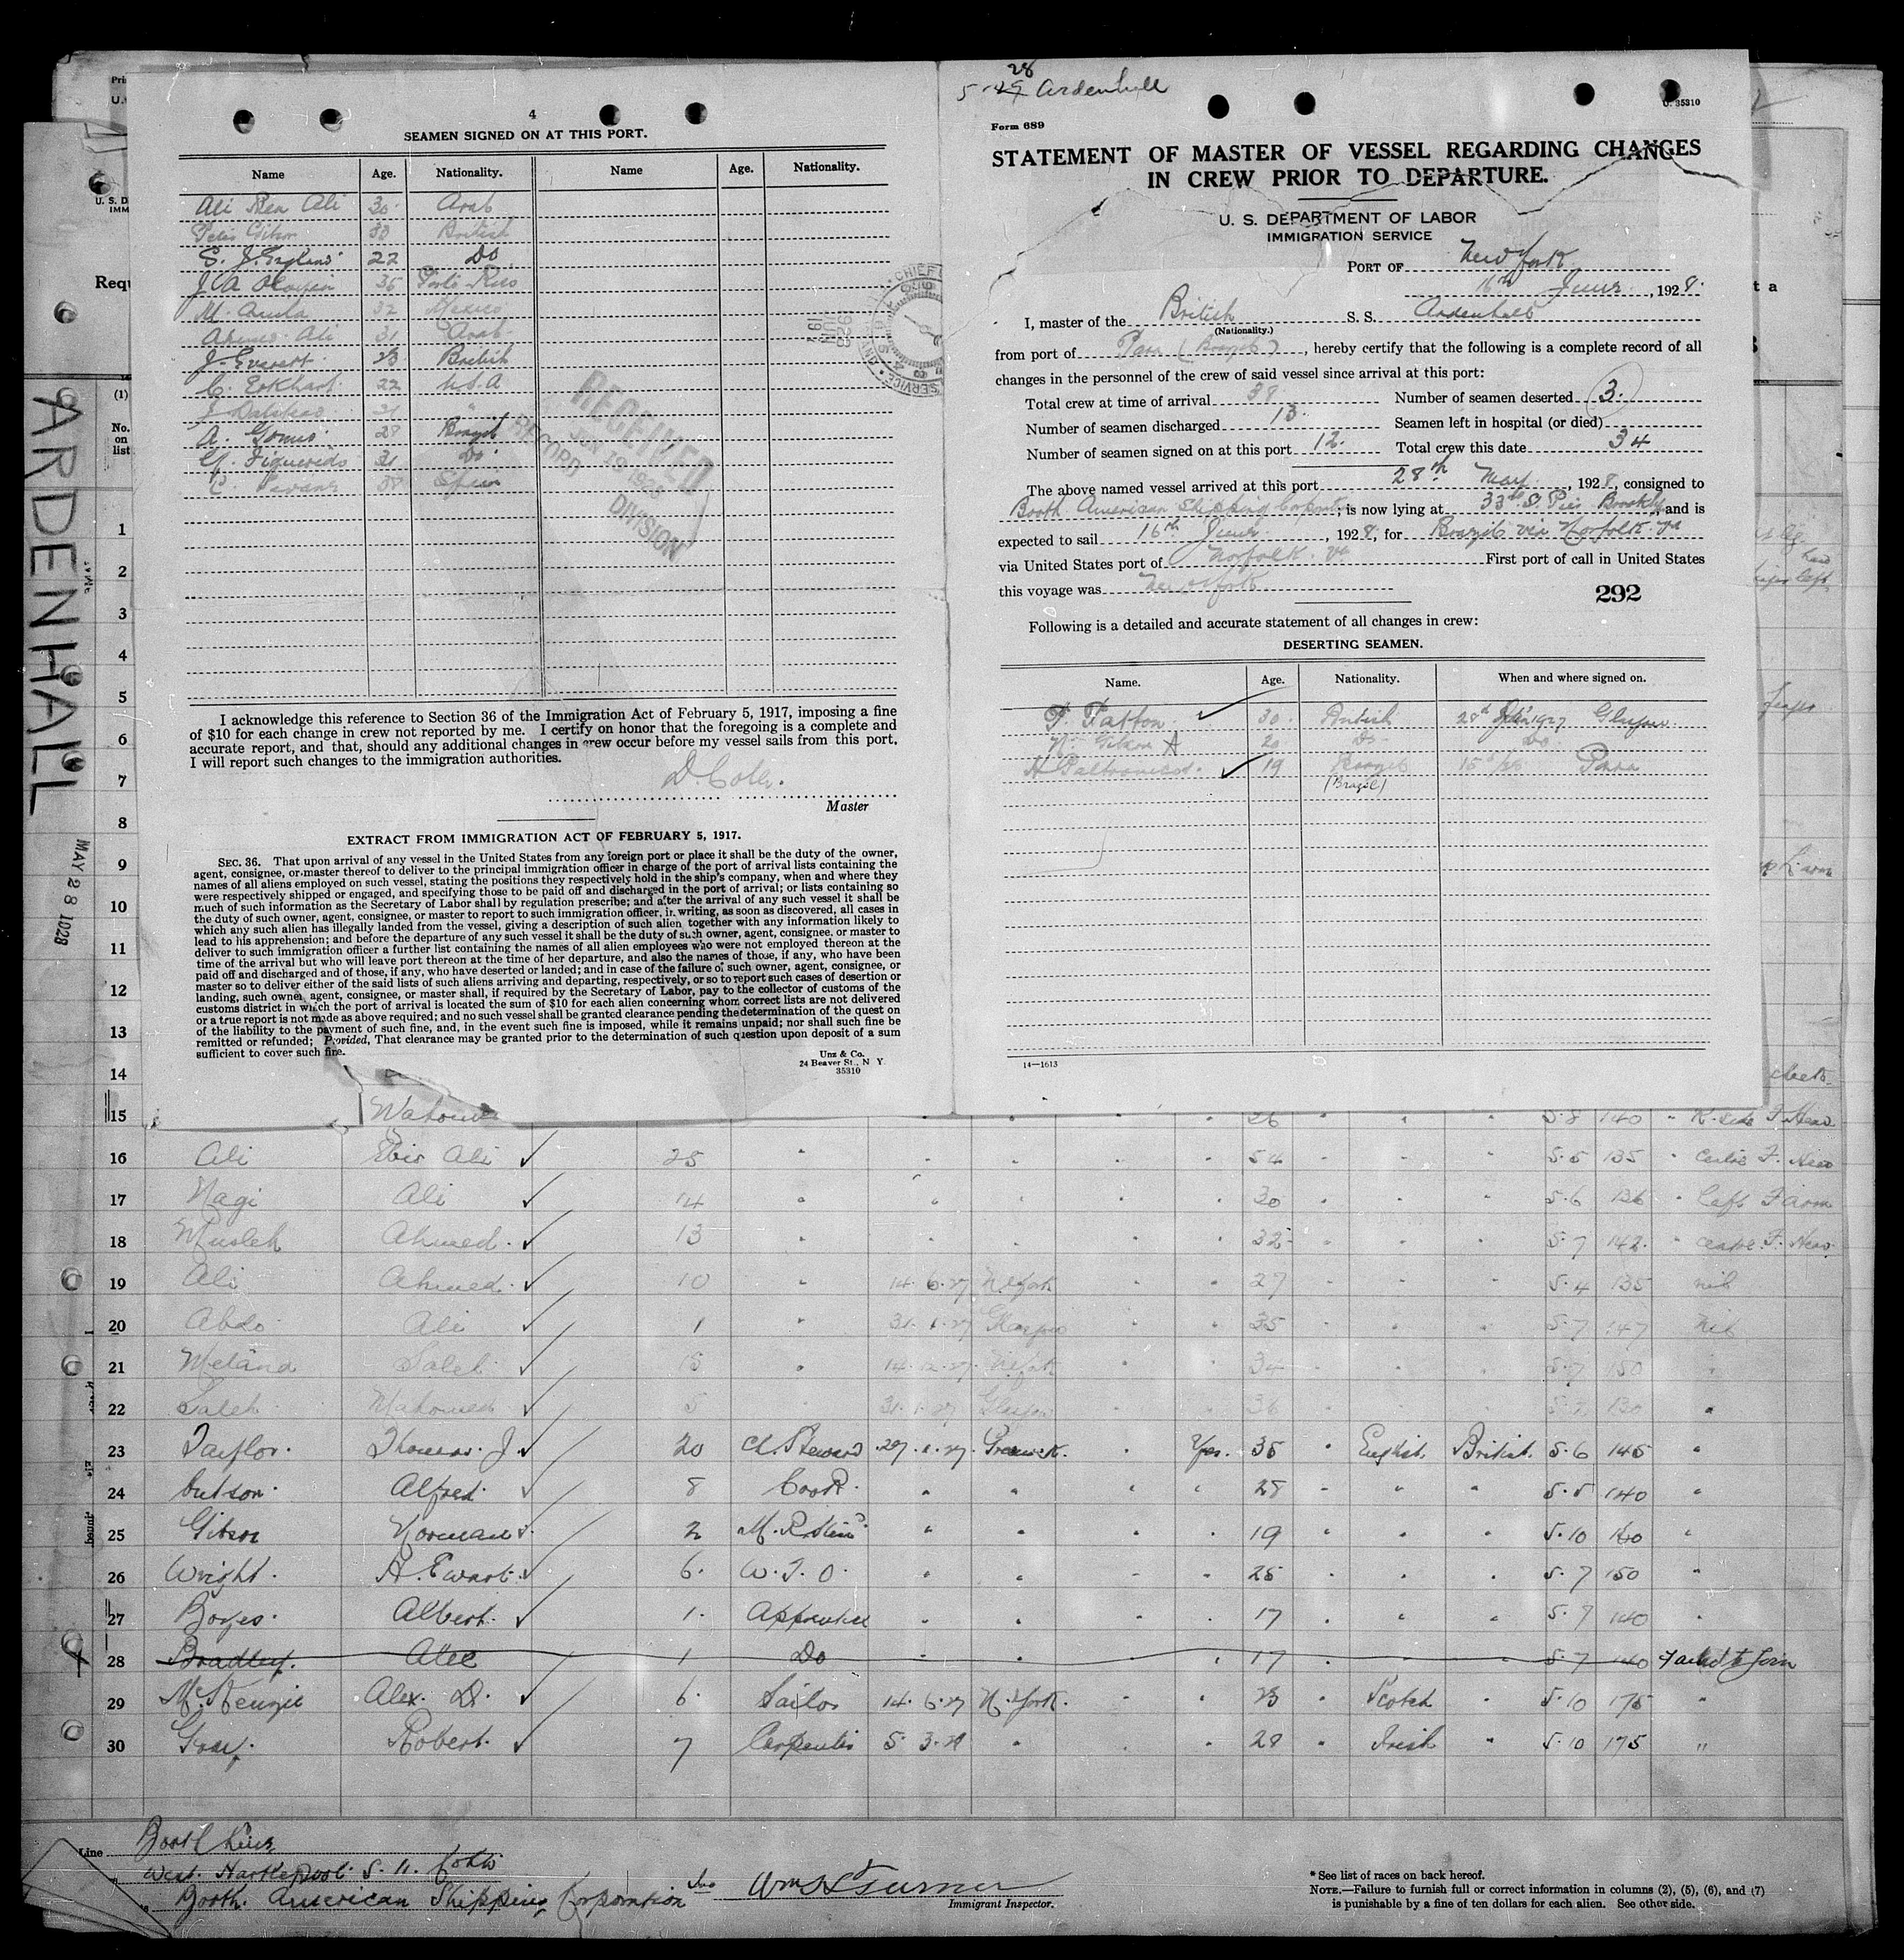 4
SEAMEN SIGNED ON AT THIS PORT.
Name Age. Nationality. Name Age. Nationality.
Ali Ben Ali 30 Arab
Peter Gibson 38 British
S. J. England 22 Do
J. A. 35 Porto Rico
M. 32 Mexico
Ahmed Ali 31 Arab
J. Everett 23 British
C. Eckhart 22 U.S.A
31 "
A. Gomes 28 Brazil
M. Figueredo 31 Do
38 Spain
RECEIVED
JUN 19 1928
RECORD DIVISION
I acknowledge this reference to Section 36 of the Immigration Act of February 5, 1917, imposing a fine
of $10 for each change in crew not reported by me. I certify on honor that the foregoing is a complete and
accurate report, and that, should any additional changes in crew occur before my vessel sails from this port,
I will report such changes to the immigration authorities.
D. Cole.
Master
EXTRACT FROM IMMIGRATION ACT OF FEBRUARY 5, 1917.
SEC. 36. That upon arrival of any vessel in the United States from any foreign port or place it shall be the duty of the owner,
agent, consignee, or master thereof to deliver to the principal immigration officer in charge of the port of arrival lists containing the
names of all aliens employed on such vessel, stating the positions they respectively hold in the ship's company, when and where they
were respectively shipped or engaged, and specifying those to be paid off and discharged in the port of arrival; or lists containing so
much of such information as the Secretary of Labor shall by regulation prescribe; and after the arrival of any such vessel it shall be
the duty of such owner, agent, consignee, or master to report to such immigration officer, in writing, as soon as discovered, all cases in
which any such alien has illegally landed from the vessel, giving a description of such alien, together with any information likely to
lead to his apprehension; and before the departure of any such vessel it shall be the duty of such owner, agent, consignee, or master to
deliver to such immigration officer a further list containing the names of all alien employees who were not employed thereon at the
time of the arrival but who will leave port thereon at the time of her departure, and also the names of those, if any, who have been
paid off and discharged and of those, if any, who have deserted or landed; and in case of the failure of such owner, agent, consignee, or
master so to deliver either of the said lists of such aliens arriving and departing, respectively, or so to report such cases of desertion or
landing, such owner, agent, consignee, or master shall, if required by the Secretary of Labor, pay to the collector of customs of the
customs district in which the port of arrival is located the sum of $10 for each alien concerning whom correct lists are not delivered
or a true report is not made as above required; and no such vessel shall be granted clearance pending the determination of the quest on
of the liability to the payment of such fine, and, in the event such fine is imposed, while it remains unpaid; nor shall such fine be
remitted or refunded; Provided, That clearance may be granted prior to the determination of such question upon deposit of a sum
sufficient to cover such fine.
Unz & Co.
24 Beaver St., N Y
35310
5-28 Ardenhall
U. 35310
Form 689
STATEMENT OF MASTER OF VESSEL REGARDING CHANGES
IN CREW PRIOR TO DEPARTURE.
U. S. DEPARTMENT OF LABOR
IMMIGRATION SERVICE
PORT OF New York
16th June, 1928.
I, master of the British S. S. Ardenhall
(Nationality.)
from port of Para (Brazil), hereby certify that the following is a complete record of all
changes in the personnel of the crew of said vessel since arrival at this port:
Total crew at time of arrival 38 Number of seamen deserted 3.
Number of seamen discharged 13. Seamen left in hospital (or died)
Number of seamen signed on at this port 12. Total crew this date 34
The above named vessel arrived at this port 28th May, 1928, consigned to
Booth American Shipping Corpn; is now lying at 33rd St Pier Brooklyn, and is
expected to sail 16th June, 1928, for Brazil via Norfolk Va
via United States port of Norfolk. Va First port of call in United States
this voyage was New York
292
Following is a detailed and accurate statement of all changes in crew:
DESERTING SEAMEN.
Name. Age. Nationality. When and where signed on.
P. Patton 30 British 28th Jan 1927 Glasgow
N. Gibson A 20 Do Do
19 Brazil Para
(Brazil)
14—1613
ARDENHALL
MAY 28 1928
Requ
(1)
No. on list
1
2
3
4
5
6
7
8
9
10
11
12
13
14
15 Mahomed 26 5.8 140 R. side F. Head
16 Ali Ebis Ali 25 54 5.5 135 Centre F. Head
17 Nagi Ali 14 30 5.6 136 left F arm
18 Musleh Ahmed 13 32 5.7 142 centre F. Head
19 Ali Ahmed 10 14.6.27 N York 27 5.4 135 nil
20 Abdo Ali 1 31.1.27 Glasgow 35 5.7 147 nil
21 Melana Saleh 5 14.12.27 N York 34 5.7 150 "
22 Saleh Mahomed 5 31.1.27 Glasgow 36 5.7 130 "
23 Taylor Thomas J. 20 Ch. Steward 29.1.27 Greenock Yes. 35 English British 5.6 145 "
24 Cutson Alfred 8 Cook 28 5.5 140 "
25 Gibson Norman 2 19 5.10 140 "
26 Wright A. Ewart 6. W. T. O. 25 5.7 150 "
27 Boyes Albert 1. Apprentice 17 5.7 140 "
28 Bradley. Alec 1 Do 17 5.7 140 Failed to join
29 McKenzie Alex. D. 6. Sailor 14.6.27 N. York. 23 Scotch 5.10 175 "
30 Gray Robert 7 Carpenter 5.3.28 28 Irish 5.10 175 "
Line Booth Line
West Hartlepool S. N. Co Ltd
Booth American Shipping Corporation
Wm H Turner
Immigrant Inspector.
* See list of races on back hereof.
NOTE.—Failure to furnish full or correct information in columns (2), (5), (6), and (7)
is punishable by a fine of ten dollars for each alien. See other side.